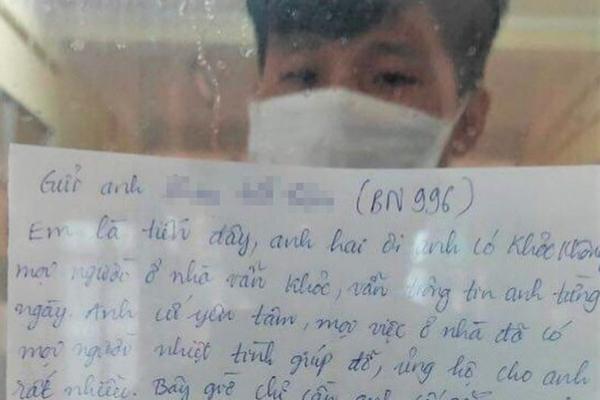 Gửi anh (BN 996)
Em là tiến đây, anh hai ơi anh có khỏe không
mọi người ở nhà vẫn khỏe, vẫn trông tin anh từng
ngày. Anh cứ yên tâm, mọi việc ở nhà đã có
mọi người nhiệt tình giúp đỡ, ủng hộ cho anh
rất nhiều. Bây giờ chỉ cần anh cố